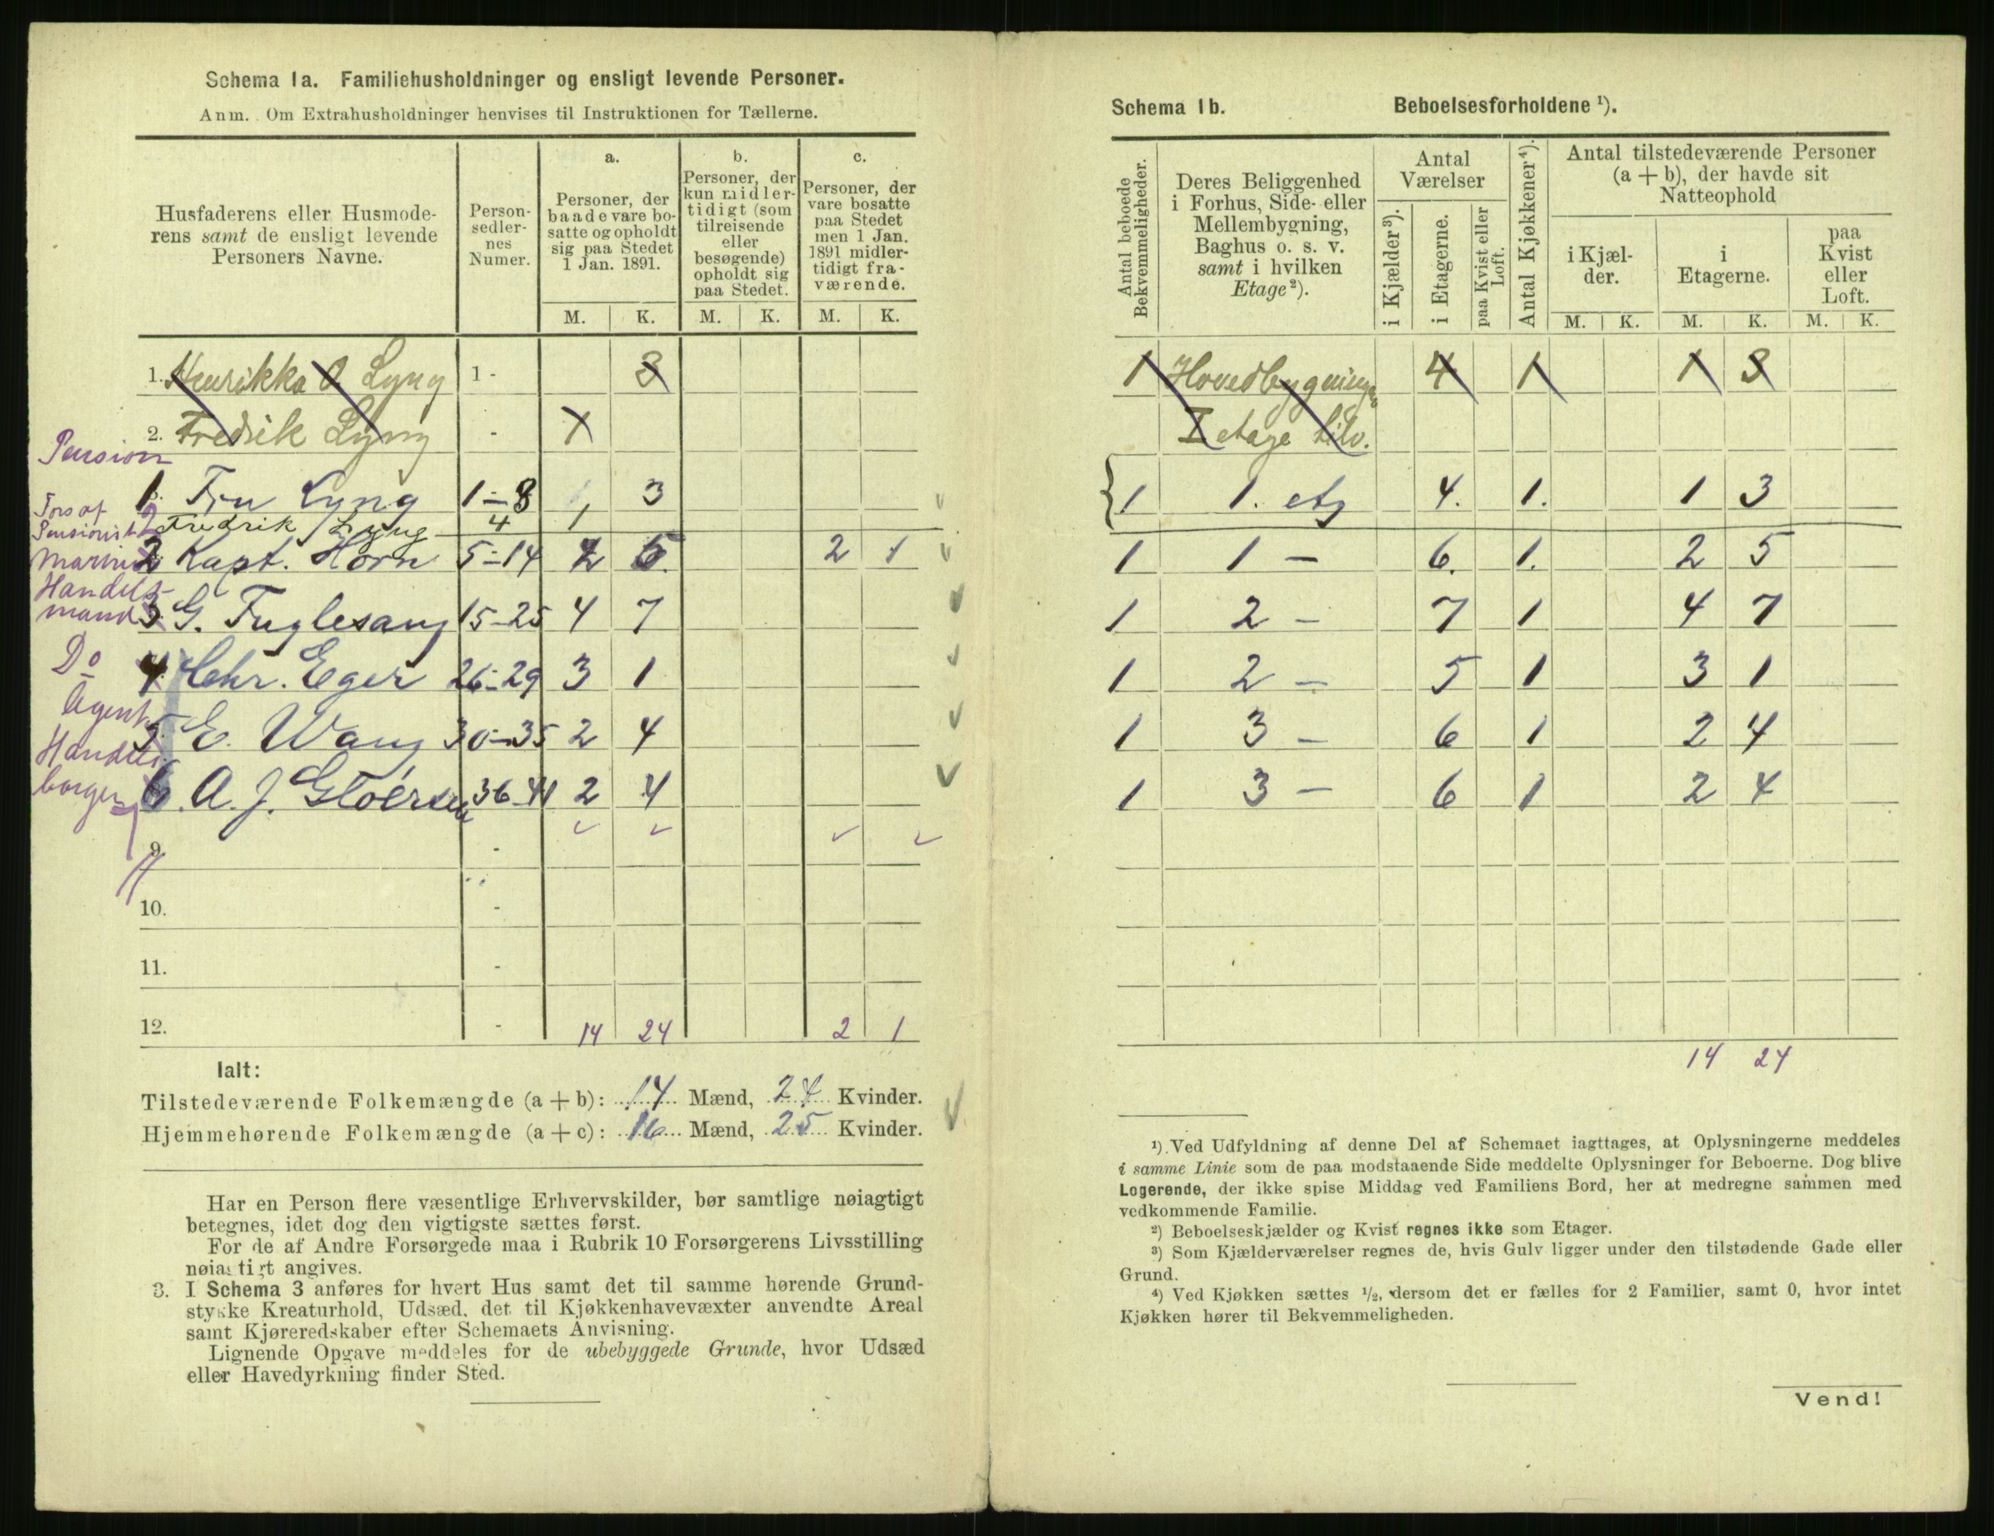 Schema 1a. Familiehusholdninger og ensligt levende Personer.
Anm. Om Extrahusholdninger henvises til Instruktionen for Tællerne.
Husfaderens eller Husmode-
rens samt de ensligt levende
Personers Navne.
Person-
sedler-
nes
Numer.
a.
Personer, der
baade vare bo-
satte og opholdt
sig paa Stedet
1 Jan. 1891.
b.
Personer, der
kun midler-
tidigt (som
tilreisende
eller
besøgende)
opholdt sig
paa Stedet.
c.
Personer, der
vare bosatte
paa Stedet
men 1 Jan.
1891 midler-
tidigt fra-
værende.
M. K. M. K. M. K.
1. Henrikka O. Lyng 1 - 3
2. Fredrik Lyng - 1
Pension
1 Fru Lyng 1-3 3
Fors af
Pensionist
2 Fredrik Lyng 4 1
Marine
2 Kapt. Horn 5-14 2 5 2 1
Handels-
mand
3. G. Fuglesang 15-25 4 7
Do
4. Chr. Eger 26-29 3 1
Agent
5. E. Wang 30-35 2 4
Handels
borger
6. A. J. Gloersen 36-41 2 4
9. -
10. -
11. -
12. - 14 24 2 1
Ialt:
Tilstedeværende Folkemængde (a + b): 14 Mænd, 24 Kvinder.
Hjemmehørende Folkemængde (a + c): 16 Mænd, 25 Kvinder.
Har en Person flere væsentlige Erhvervskilder, bør samtlige nøiagtigt
betegnes, idet dog den vigtigste sættes først.
For de af Andre Forsørgede maa i Rubrik 10 Forsørgerens Livsstilling
nøiagtigt angives.
3. I Schema 3 anføres for hvert Hus samt det til samme hørende Grund-
stykke Kreaturhold, Udsæd, det til Kjøkkenhavevæxter anvendte Areal
samt Kjøreredskaber efter Schemaets Anvisning.
Lignende Opgave meddeles for de ubebyggede Grunde, hvor Udsæd
eller Havedyrkning finder Sted.
Schema 1b. Beboelsesforholdene ¹).
Antal beboede
Bekvemmeligheder.
Deres Beliggenhed
i Forhus, Side- eller
Mellembygning,
Baghus o. s. v.
samt i hvilken
Etage²).
Antal
Værelser
i Kjælder³).
i Etagerne.
paa Kvist eller
Loft.
Antal Kjøkkener⁴).
Antal tilstedeværende Personer
(a + b), der havde sit
Natteophold
i Kjæl-
der.
i
Etagerne.
paa
Kvist
eller
Loft.
M. K. M. K. M. K.
1 Hovedbygningen 4 1 1 3
I etage tilv.
1 1. etg 4. 1. 1 3
1 1 - 6. 1. 2 5
1 2 - 7 1 4 7
1 2 - 5 1 3 1
1 3 - 6 1 2 4
1 3 - 6 1 2 4
14 24
¹) Ved Udfyldning af denne Del af Schemaet iagttages, at Oplysningerne meddeles
i samme Linie som de paa modstaaende Side meddelte Oplysninger for Beboerne. Dog blive
Logerende, der ikke spise Middag ved Familiens Bord, her at medregne sammen med
vedkommende Familie.
²) Beboelseskjælder og Kvist regnes ikke som Etager.
³) Som Kjælderværelser regnes de, hvis Gulv ligger under den tilstødende Gade eller
Grund.
⁴) Ved Kjøkken sættes ½, dersom det er fælles for 2 Familier, samt 0, hvor intet
Kjøkken hører til Bekvemmeligheden.
Vend!